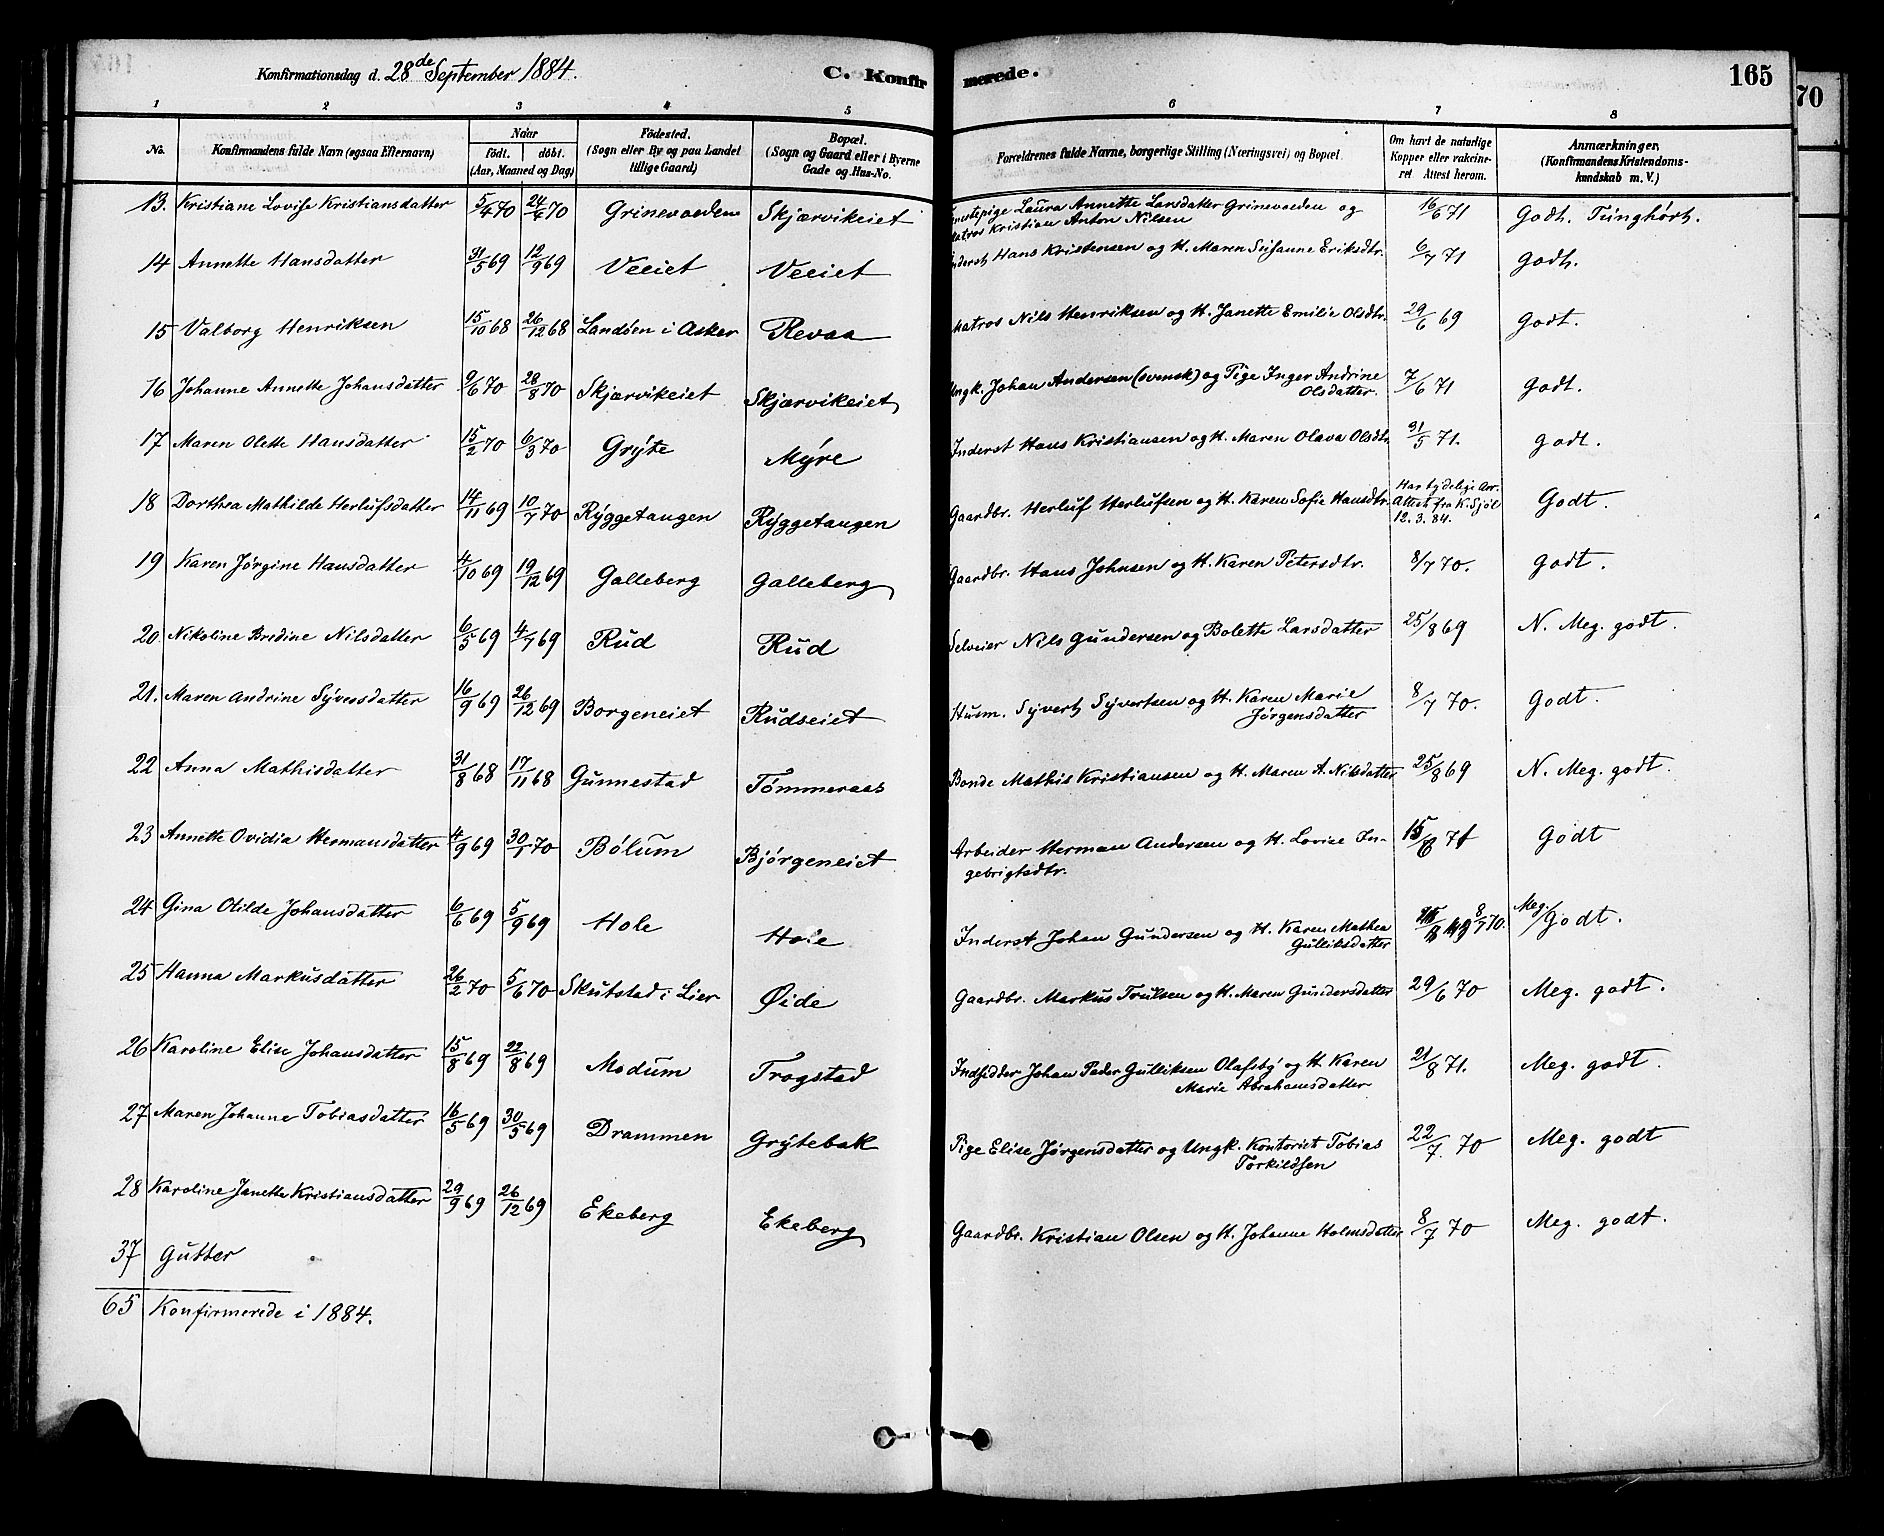 Konfirmationsdag d. 28de September 1884. C. Konfirmerede. 165
70
1 2 3 4 5 6 7 8
No. Konfirmandens fulde Navn (ogsaa Efternavn) Naar födt. döbt. (Aar, Maaned og Dag) Födested. (Sogn eller By og paa Landet tillige Gaard) Bopæl. (Sogn og Gaard eller i Byerne Gade og Hus-No. Forældrenes fulde Navne, borgerlige Stilling (Næringsvei) og Bopæl. Om havt de naturlige Kopper eller vakcineret Attest herom. Anmærkninger, (Konfirmandens Kristendomskundskab m. V.)
13. Kristiane Lovise Kristiansdatter 5/4 70 24/6 70 Grinevoeden Skjærvikeiet Laura Annette Larsdatter Grinevoeden og Kristian Anton Nilsen 16/6 71 Godt. Tunghørt.
14 Annette Hansdatter 31/5 69 12/9 69 Veeiet Veeiet Inderst Hans Kristensen og H. Maren Susanne Eriksdtr. 6/7 71 Godt.
15 Valborg Henriksen 15/10 68 26/12 68 Landöen i Asker Revaa Matros Nils Henriksen og H. Janette Emilie Olsdtr. 29/6 69 Godt.
16 Johanne Annette Johansdatter 9/6 70 28/8 70 Skjærvikeiet Skjærvikeiet Ungk. Johan Andersen (svensk) og Pige Inger Andrine Olsdatter. 7/6 71 Godt.
17 Maren Olette Hansdatter 15/2 70 6/3 70 Grýte Mýre Inderst Hans Kristiansen og H. Maren Olava Olsdtr. 31/5 71. Godt.
18 Dorthea Mathilde Herlufsdatter 14/11 69 10/7 70 Rýggetangen Rýggetangen Gaardbr. Herluf Herlufsen og H. Karen Sofie Hansdtr. Har tydelige Arr. Attest fra K. Sjöl 12.3.84. Godt.
19 Karen Jørgine Hansdatter 4/10 69 19/12 69 Galleberg Galleberg Gaardbr. Hans Johnsen og H. Karen Petersdtr. 8/7 70. Godt.
20. Nikoline Bredine Nilsdatter 6/5 69 4/7 69 Rud Rud Selveier Nils Gundersen og Bolette Larsdatter 25/8 69 N. Meg. godt.
21. Maren Andrine Sýversdatter 16/9 69 26/12 69 Borgeneiet Rudseiet Husm. Sývert Sývertsen og H. Karen Marie Jørgensdatter 8/7 70. Godt.
22 Anna Mathisdatter 31/8 68 17/11 68 Gunnestad Tömmeraas Bonde Mathis Kristiansen og H. Maren A. Nilsdatter 25/8 69 N. Meg. godt.
23 Annette Ovidia Hermansdatter 4/9 69 30/1 70 Bölum Bjørgeneiet Arbeider Herman Andersen og H. Lovise Ingebrigtsdtr. 15/6 71 Godt
24 Gina Otilde Johansdatter 6/6 69 5/9 69 Hole Hole Inderst Johan Gundersen og H. Karen Mathea Gulliksdatter 8/7 70. Meg. Godt.
25 Hanna Markusdatter 26/2 70 5/6 70 Skutstad i Lier Øide Gaardbr. Markus Trulsen og H. Maren Gundersdatter 29/6 70 Meg. godt.
26 Karoline Elise Johansdatter 15/8 69 22/8 69 Modum Trogstad Indsidder Johan Peder Gulliksen Olafsbý og H. Karen Marie Abrahamsdatter 21/8 71. Meg. godt.
27 Maren Johanne Tobiasdatter 16/5 69 30/5 69 Drammen Grýtebak Pige Elise Jørgensdatter og Ungk. Kontorist Tobias Torkildsen 22/7. 70 Meg. godt
28 Karoline Janette Kristiansdatter 29/9 69 26/12 69 Ekeberg Ekeberg Gaardbr. Kristian Olsen og H. Johanne Holmsdatter 8/7 70 Meg. godt.
37 Gutter
65 Konfirmerede i 1884.